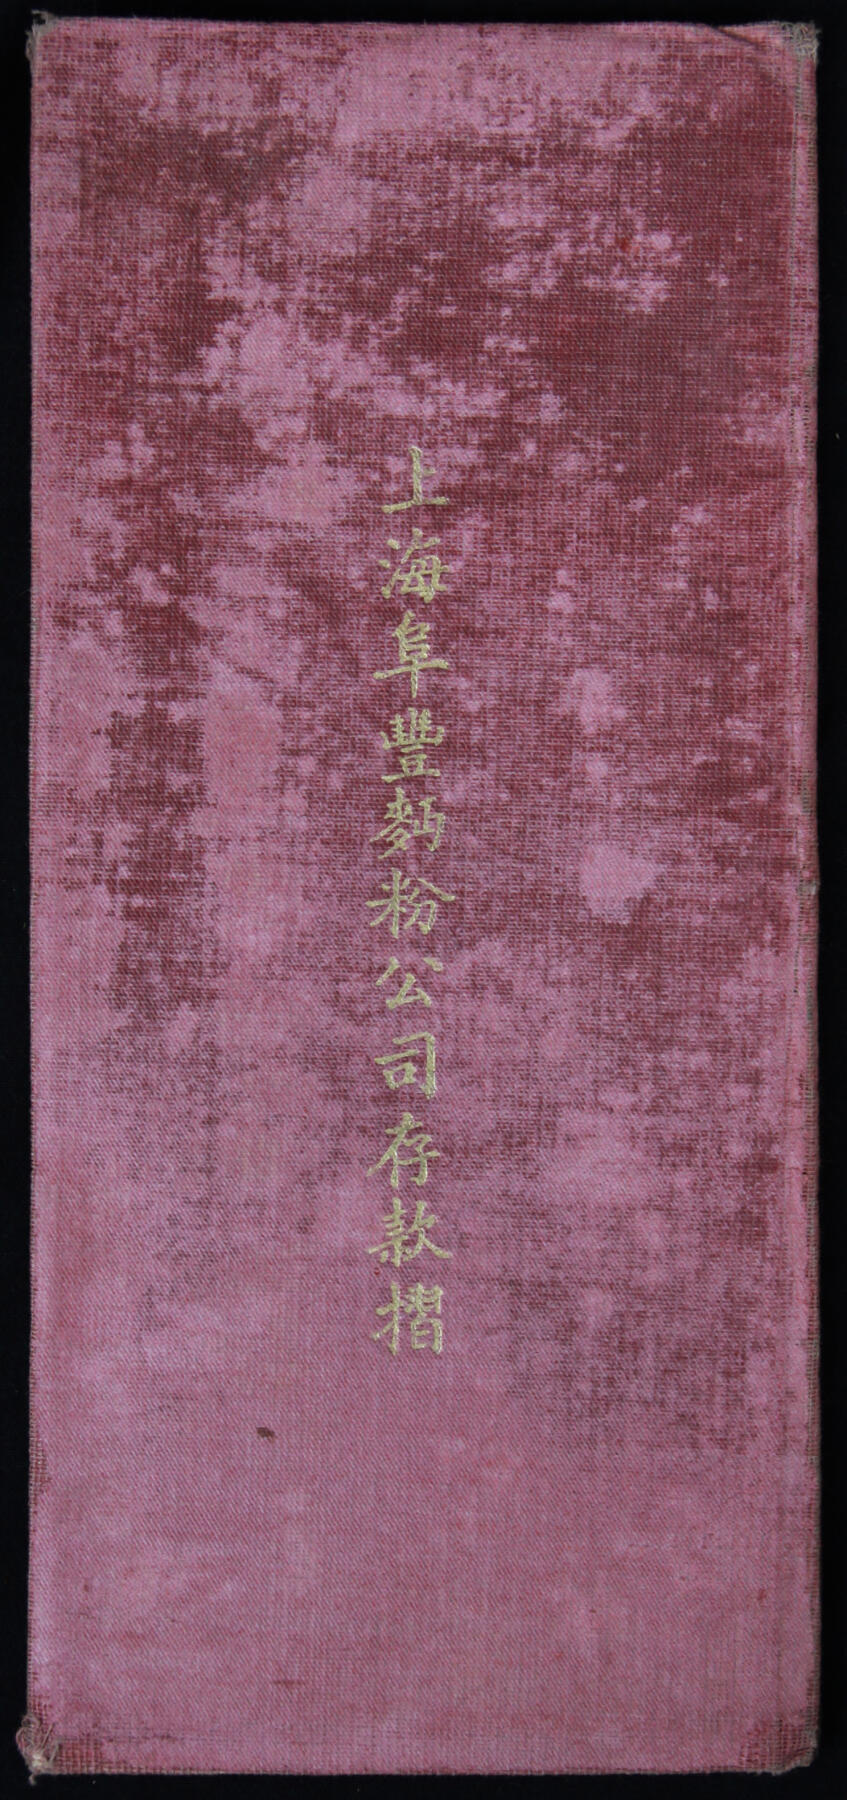 上海阜豐麪粉公司存款摺